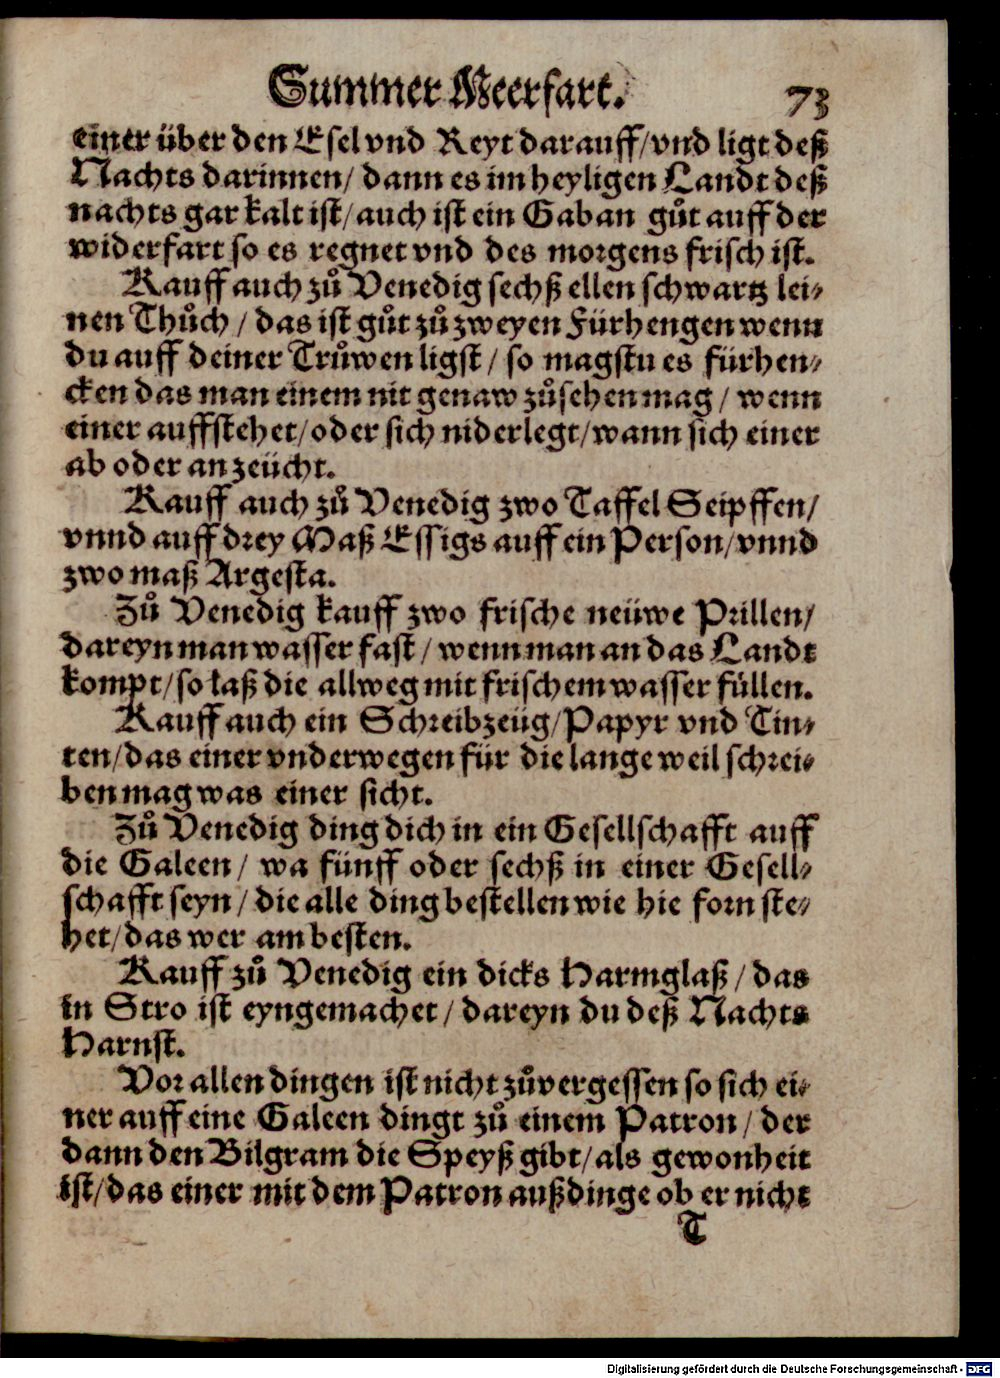 Summer Meerfart. 73
einer über den Esel vnd Reyt darauff/vnd ligt deß
Nachts darinnen/ dann es im heyligen Landt deß
nachts gar kalt ist/auch ist ein Gaban gůt auff der
widerfart so es regnet vnd des morgens frisch ist.
Kauff auch zů Venedig sechß ellen schwartz lei⸗
nen Thůch / das ist gůt zů zweyen Fürhengen wenn
du auff deiner Trůwen ligst / so magstu es fürhen⸗
cken das man einem nit genaw zůsehen mag / wenn
einer auffstehet/oder sich niderlegt/wann sich einer
ab oder anzeücht.
Kauff auch zů Venedig zwo Taffel Seipffen/
vnnd auff drey Maß Essigs auff ein Person/vnnd
zwo maß Argesta.
Zů Venedig kauff zwo frische neüwe Prillen/
dareyn man wasser fast / wenn man an das Landt
kompt/so laß die allweg mit frischem wasser füllen.
Kauff auch ein Schreibzeüg/Papyr vnd Tin⸗
ten/das einer vnderwegen für die lange weil schrei⸗
ben mag was einer sicht.
Zů Venedig ding dich in ein Gesellschafft auff
die Galeen/ wa fünff oder sechß in einer Gesell⸗
schafft seyn / die alle ding bestellen wie hie forn ste⸗
het/das wer am besten.
Kauff zů Venedig ein dicks Harmglaß / das
in Stro ist eyngemachet / dareyn du deß Nachts
Harnst.
Vor allen dingen ist nicht zůvergessen so sich ei⸗
ner auff eine Galeen dingt zů einem Patron / der
dann den Bilgram die Speyß gibt/als gewonheit
ist/das einer mit dem Patron außdinge ob er nicht
T
Digitalisierung gefördert durch die Deutsche Forschungsgemeinschaft - DFG